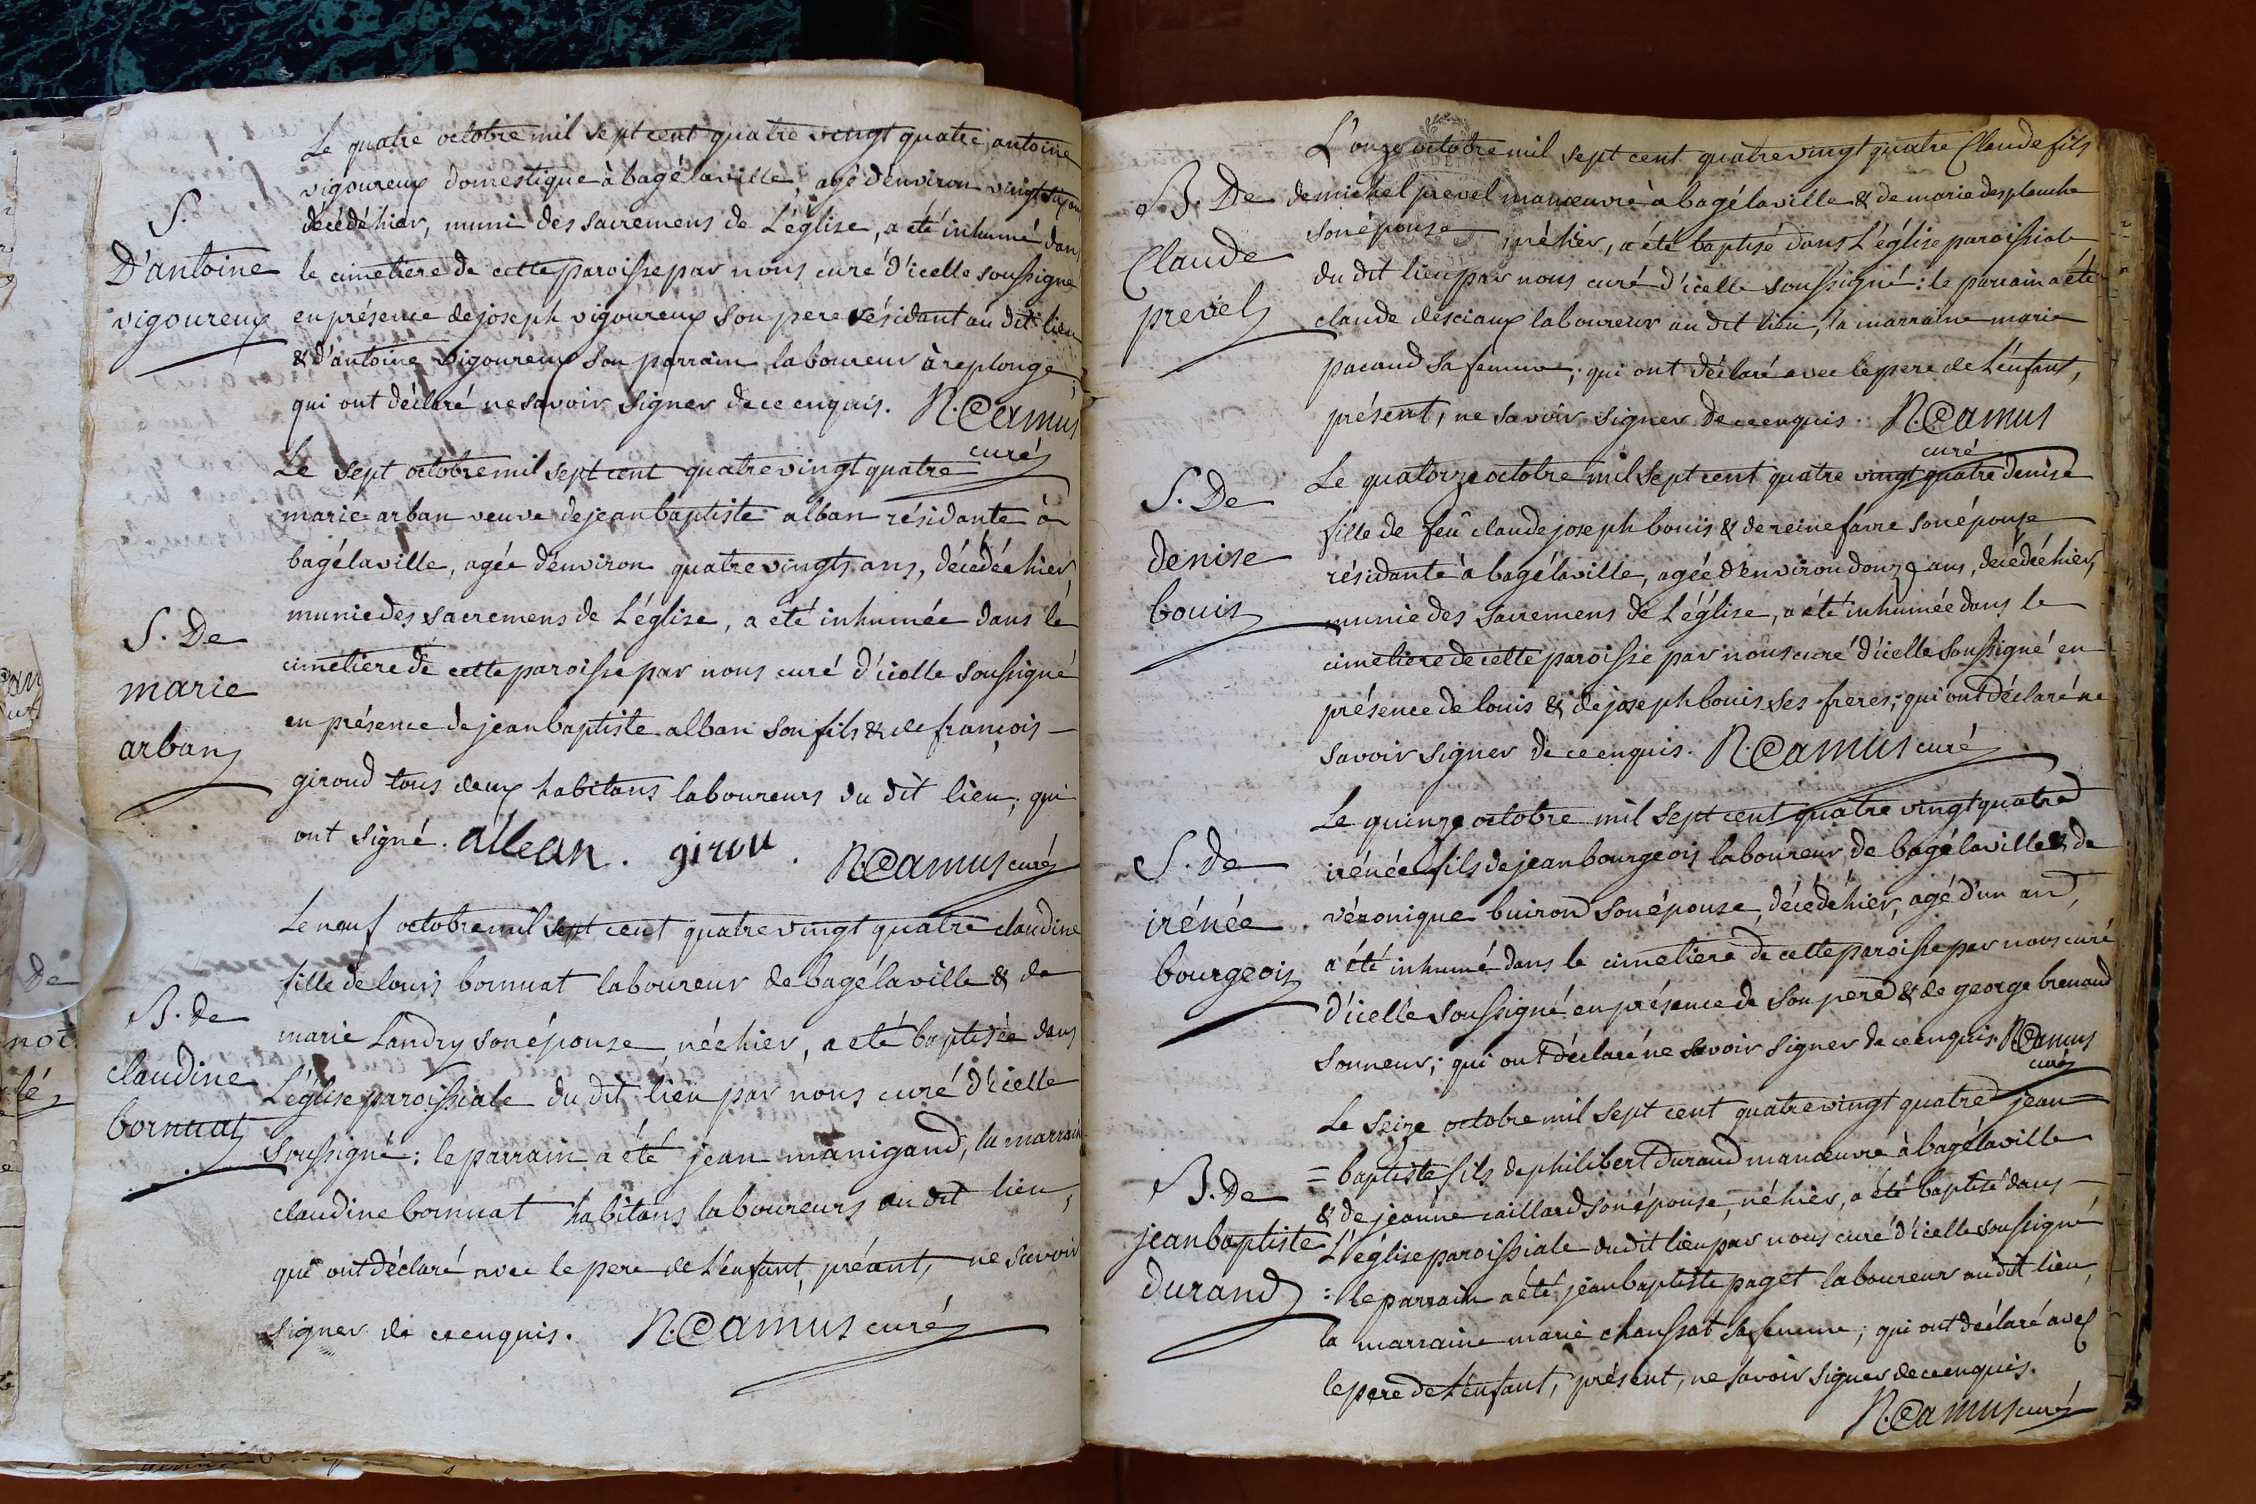 Le quatre octobre mil sept cent quatre vingt quatre, antoine
vigoureux domestique à bagélaville, agé d'environ vingt six ans
décédé hier, muni des sacremens de L'église, a été inhumé dans
le cimetiere de cette paroisse par nous curé d'icelle soussigné
en présence de joseph vigoureux son pere résidant au dit lieu
& d'antoine vigoureux son parrain laboureur à replonge,
qui ont déclaré ne savoir signer de ce enquis. N. Camus
curé
S.
D'antoine
vigoureux
Le sept octobre mil sept cent quatre vingt quatre
marie arban veuve de jean baptiste alban résidante à
bagélaville, agée d'environ quatre vingts ans, décédée hier,
munie des sacremens de L'église, a été inhumée dans le
cimetiere de cette paroisse par nous curé d'icelle soussigné
en présence de jean baptiste alban son fils & de françois
giroud tous deux habitans laboureurs du dit lieu; qui
ont signé. alban. girou. N. Camus curé
S. De
marie
arban
Le neuf octobre mil sept cent quatre vingt quatre claudine
fille de louis bornuat laboureur de bagélaville & de
marie Landry son épouse, née hier, a été baptisée dans
L'église paroissiale du dit lieu par nous curé d'icelle
soussigné: le parrain a été jean manigand, la marraine
claudine bornuat habitans laboureurs au dit lieu,
qui ont déclaré avec le pere de L'enfant, présent, ne savoir
signer de ce enquis. N. Camus curé
B. de
claudine
bornuat
L'onze octobre mil sept cent quatre vingt quatre Claude fils
de michel prevel manœuvre à bagélaville & de marie desplanche
son épouse né hier, a été baptisé dans L'église paroissiale
du dit lieu par nous curé d'icelle soussigné: le parrain a été
claude desciaux laboureur au dit lieu, la marraine marie
pacaud sa femme; qui ont déclaré avec le pere de L'enfant,
présent, ne savoir signer de ce enquis. N. Camus
curé
B. De
Claude
prevel
Le quatorze octobre mil sept cent quatre vingt quatre denise
fille de feu claude joseph bouis & de reine favre son épouse
résidante à bagélaville, agée d'environ douze ans, décédée hier,
munie des sacremens de L'église, a été inhumée dans le
cimetiere de cette paroisse par nous curé d'icelle soussigné en
présence de louis & de joseph bouis ses freres; qui ont déclaré ne
savoir signer de ce enquis. N. Camus curé
S. De
denise
bouis
Le quinze octobre mil sept cent quatre vingt quatre
irénée fils de jean bourgeois laboureur de bagélaville & de
véronique buiron son épouse, décédé hier, agé d'un an,
a été inhumé dans le cimetiere de cette paroisse par nous curé
d'icelle soussigné en présence de son pere & de george brenaud
sonneur; qui ont déclaré ne savoir signer de ce enquis. N. Camus
curé
S. de
irénée
bourgeois
Le seize octobre mil sept cent quatre vingt quatre jean
= baptiste fils de philibert durand manœuvre à bagélaville
& de jeanne caillard son épouse, né hier, a été baptisé dans
L'église paroissiale du dit lieu par nous curé d'icelle soussigné
: le parrain a été jean baptiste paget laboureur au dit lieu,
la marraine marie chaussat sa femme; qui ont déclaré avec
le pere de L'enfant, présent, ne savoir signer de ce enquis.
N. Camus curé
B. de
jean baptiste
durand